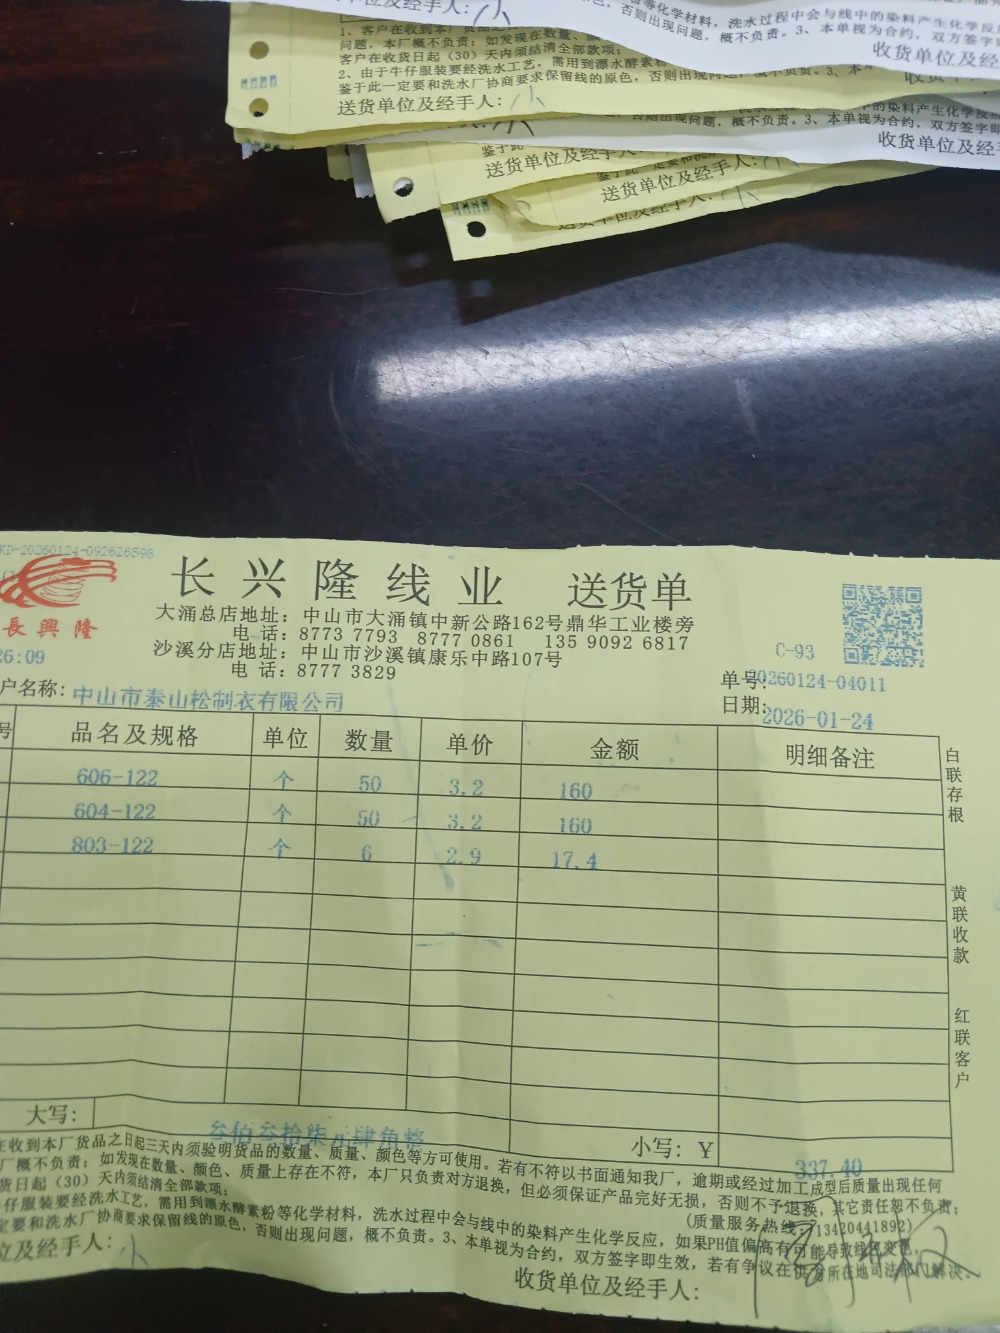 单位及经手人:
等化学材料，洗水过程中会与线中的染料产生化学反应
否则出现问题，概不负责。3、本单视为合约，双方签字即
收货单位及经
1、客户在收到本厂货品之
问题，本厂概不负责；如发现在数量、
客户在收货日起（30）天内须结清全部款项；
2、由于牛仔服装要经洗水工艺，需用到漂水酵素粉
鉴于此一定要和洗水厂协商要求保留线的原色，否则出现问题，概不负责。3、本
送货单位及经手人：小
的染料产生化学反
否则出现问题，概不负责。3、本单视为合约，双方签字即
收货单位及经手
送货单位及经手人：
送货单位及经手人：
KD-20260124-092626598
長興隆
26:09
长兴隆线业 送货单
大涌总店地址：中山市大涌镇中新公路162号鼎华工业楼旁
电话：8773 7793 8777 0861 135 9092 6817
沙溪分店地址：中山市沙溪镇康乐中路107号
电话：8777 3829
C-93
单号:20260124-04011
日期:2026-01-24
户名称:中山市泰山松制衣有限公司
号 品名及规格 单位 数量 单价 金额 明细备注
606-122 个 50 3.2 160
604-122 个 50 3.2 160
803-122 个 6 2.9 17.4
白联存根
黄联收款
红联客户
大写: 叁佰叁拾柒元肆角整 小写：￥ 337.40
在收到本厂货品之日起三天内须验明货品的数量、质量、颜色等方可使用。若有不符以书面通知我厂，逾期或经过加工成型后质量出现任何
厂概不负责；如发现在数量、颜色、质量上存在不符，本厂只负责对方退换，但必须保证产品完好无损，否则不予退换，其它责任恕不负责；
货日起（30）天内须结清全部款项；
(质量服务热线：13420441892)
仔服装要经洗水工艺，需用到漂水酵素粉等化学材料，洗水过程中会与线中的染料产生化学反应，如果PH值偏高有可能导致线色变色，
定要和洗水厂协商要求保留线的原色，否则出现问题，概不负责。3、本单视为合约，双方签字即生效，若有争议在供方所在地司法部门解决。
位及经手人：小
收货单位及经手人：